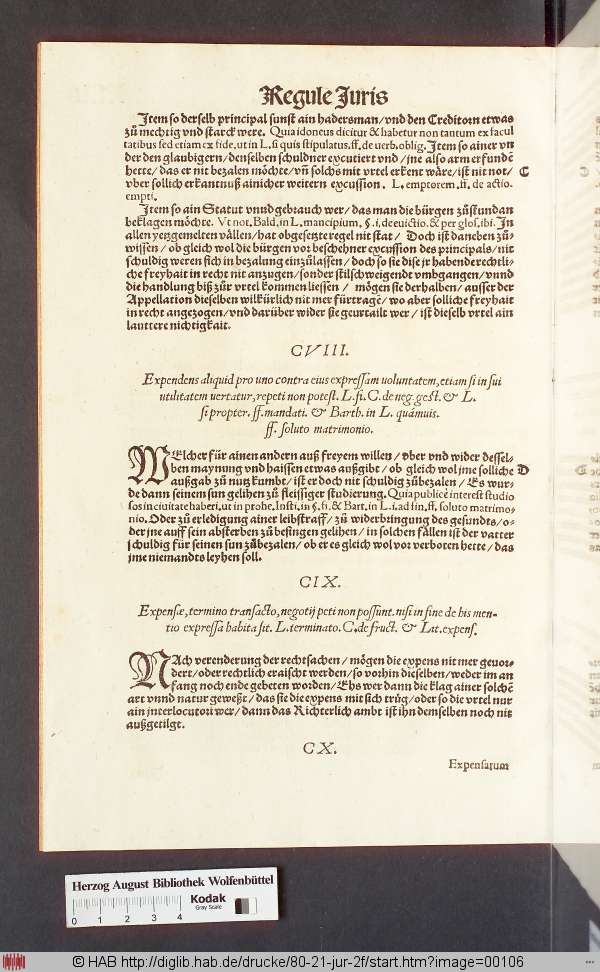 Regule Juris
Item so derselb principal sunst ain hadersman/vnd den Creditorn etwas
zů mechtig vnd starck were. Quia idoneus dicitur & habetur non tantum ex facul
tatibus sed etiam ex fide. ut in L. si quis stipulatus. ff. de uerb. oblig. Item so ainer vn
der den glaubigern/denselben schuldner excutiert vnd/jne also arm erfundē
hette/das er nit bezalen möchte/vñ solchs mit vrtel erkent wäre/ist nit not/ C
vber sollich erkantnuß ainicher weitern excussion. L. emptorem. ff. de actio.
empti.
Item so ain Statut vnnd gebrauch wer/das man die bürgen zůstundan
beklagen möchte. Vt not. Bald. in L. mancipium. §. i. de euictio. & per glos. ibi. In
allen yetzgemelten vällen/hat obgesetzte regel nit stat/ Doch ist daneben zů
wissen/ob gleich wol die bürgen vor beschehner excussion des principals/nit
schuldig weren sich in bezalung einzůlassen/doch so sie dise jr habende rechtli-
che freyhait in recht nit anzugen/sonder stilschweigendt vmbgangen/vnnd
die handlung biß zůr vrtel kommen liessen/ mögen sie derhalben/ausser der
Appellation dieselben wilkürlich nit mer fürtragē/wo aber solliche freyhait
in recht angezogen/vnd darüber wider sie geurtailt wer/ist dieselb vrtel ain
lauttere nichtigkait.
CVIII.
Expendens aliquid pro uno contra eius expressam uoluntatem, etiam si in sui
utilitatem uertatur, repeti non potest. L. fi. C. de neg. gest. & L.
si propter. ff. mandati. & Barth. in L. quámuis.
ff. soluto matrimonio.
WElcher für ainen andern auß freyem willen/vber vnd wider dessel-
ben maynung vnd haissen etwas außgibt/ob gleich wol jme solliche D
außgab zů nutz kumbt/ist er doch nit schuldig zůbezalen/Es wur-
de dann seinem sun gelihen zů fleissiger studierung. Quia publicè interest studio
sos in ciuitate haberi, ut in prohe. Insti. in §. fi. & Bart. in L. i. ad fin. ff. soluto matrimo-
nio. Oder zů erledigung ainer leibstraff/zů widerbringung des gesundts/o-
der jne auff sein absterben zůbesingen gelihen/in solchen fällen ist der vatter
schuldig für seinen sun zůbezalen/ob er es gleich wol vor verboten hette/das
jme niemandts leyhen soll.
CIX.
Expensæ, termino transacto, negotij peti non possunt. nisi in fine de his men-
tio expressa habita sit. L. terminato. C. de fruct. & Lit. expens.
NAch verenderung der rechtsachen/mögen die expens nit mer geuor-
dert/oder rechtlich eraischt werden/so vorhin dieselben/weder im an
fang noch ende gebeten worden/Ehs wer dann die klag ainer solchē
art vnnd natur geweßt/das sie die expens mit sich trůg/oder so die vrtel nur
ain jnterlocutori wer/dann das Richterlich ambt ist ihn demselben noch nit
außgetilgt.
CX.
Expensarum
Herzog August Bibliothek Wolfenbüttel
Kodak
Gray Scale
0 1 2 3 4
© HAB http://diglib.hab.de/drucke/80-21-jur-2f/start.htm?image=00106